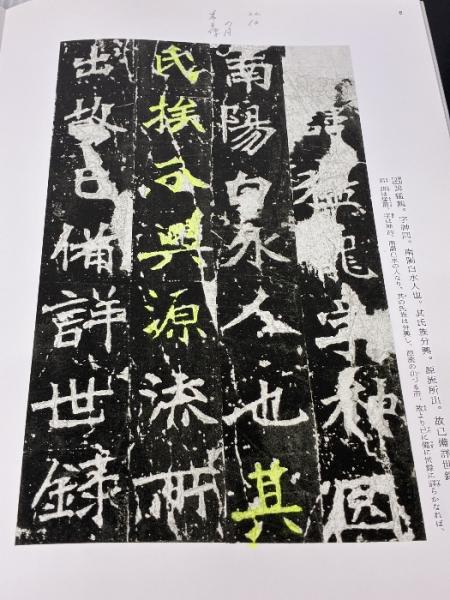 諱猛龍。字神冏。南陽白水人也。其氏族分興。源流所出。故已備詳世録
諱は猛龍、字は神冏、南陽白水の人なり。其の氏族は分興し、源流の出づる所、故より已に備に世録に詳らかなれば、
諱猛龍字神冏
南陽白水人也其
氏族分興源流所
出故已備詳世録